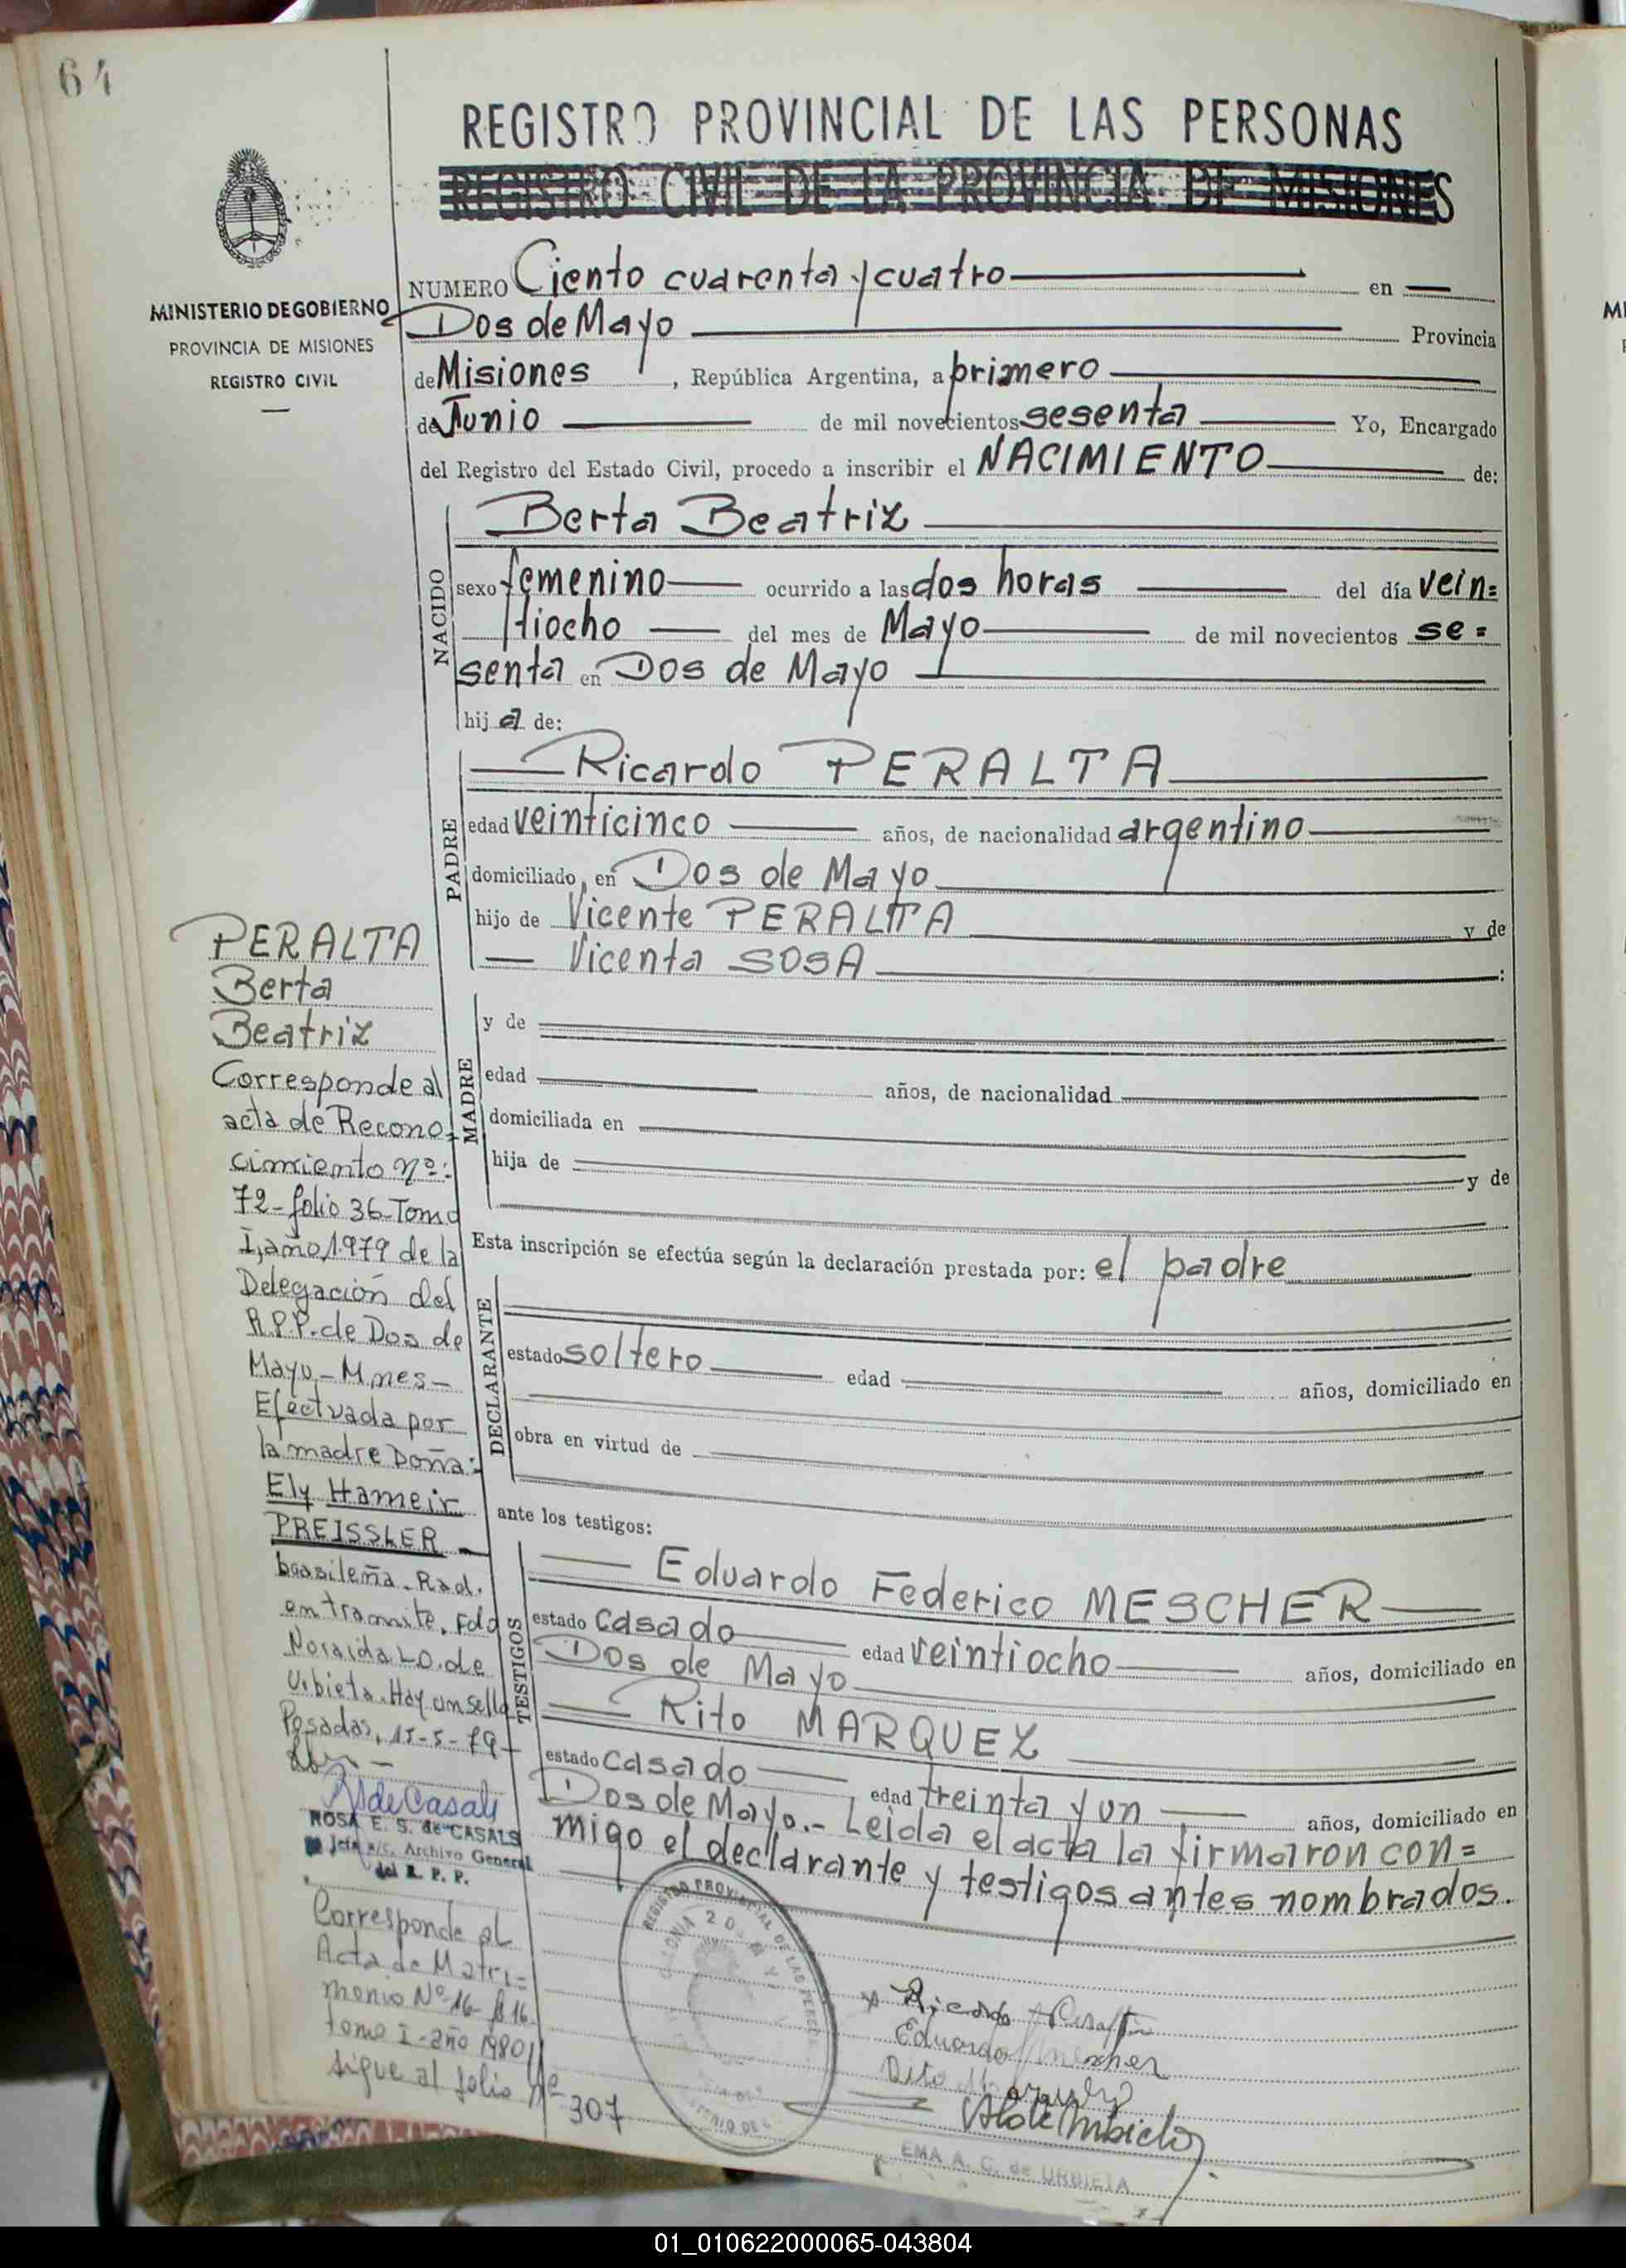 64
REGISTRO PROVINCIAL DE LAS PERSONAS
REGISTRO CIVIL DE LA PROVINCIA DE MISIONES
MINISTERIO DE GOBIERNO
PROVINCIA DE MISIONES
REGISTRO CIVIL
NUMERO Ciento cuarenta y cuatro en
Dos de Mayo Provincia
de Misiones, República Argentina, a primero
de Junio de mil novecientos sesenta Yo, Encargado
del Registro del Estado Civil, procedo a inscribir el NACIMIENTO de:
NACIDO
Berta Beatriz
sexo femenino ocurrido a las dos horas del día vein=
tiocho del mes de Mayo de mil novecientos se=
senta en Dos de Mayo
hija de:
PADRE
Ricardo PERALTA
edad veinticinco años, de nacionalidad argentino
domiciliado en Dos de Mayo
hijo de Vicente PERALTA y de
Vicenta SOSA :
MADRE
y de
edad años, de nacionalidad
domiciliada en
hija de y de
Esta inscripción se efectúa según la declaración prestada por: el padre
DECLARANTE
estado soltero edad años, domiciliado en
obra en virtud de
ante los testigos:
TESTIGOS
Eduardo Federico MESCHER
estado casado edad veintiocho años, domiciliado en
Dos de Mayo
Rito MARQUEZ
estado casado edad treinta y un años, domiciliado en
Dos de Mayo.- Leida el acta la firmaron con=
migo el declarante y testigos antes nombrados.
PERALTA
Berta
Beatriz
Corresponde al
acta de Recono=
cimiento nº:
72-folio 36-Tomo
I, año 1979 de la
Delegación del
R.P.P. de Dos de
Mayo-Mnes-
Efectuada por
la madre Doña:
Ely Hameir
PREISSLER
brasileña. Rad.
en tramite. Fdo
Noraida L.O. de
Urbieta. Hay un sello
Posadas, 15-5-79-
RSdeCasals
ROSA E. S. de CASALS
Jefa a/c. Archivo General
del R. P. P.
Corresponde al
Acta de Matri=
monio Nº 16- fº 16.
tomo I-año 1980//
sigue al folio Nº 307
REGISTRO PROVINCIAL DE LAS PERSONAS
COLONIA 2 DE MAYO
Ricardo Peralta
Eduardo Mescher
Rito Marquez
EMA A. C. de URBIETA
01_010622000065-043804